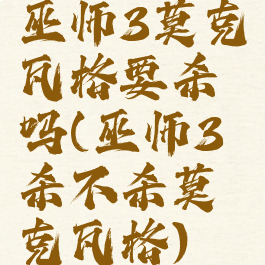 巫师3莫克
瓦格要杀
吗(巫师3
杀不杀莫
克瓦格)